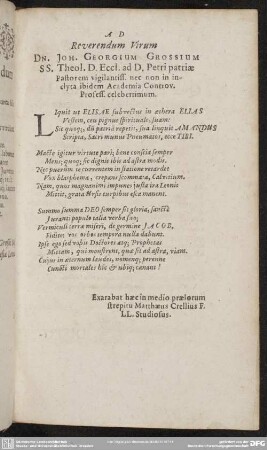 A D
Reverendum Virum
DN. JOH. GEORGIUM GROSSIUM
SS. Theol. D. Eccl. ad D. Petri patriæ
Pastorem vigilantiss. nec non in in-
clyta ibidem Academia Controv.
Profess. celeberrimum.
LIquit ut ELISAE subvectus in æthera ELIAS
Vestem, ceu pignus spirituale, suam:
Sic quoq; dũ patriã repetit, sua linquit AMANDUS
Scripta, Sacri munus Pneumatos, ecce TIBI.
Macte igitur virtute pari; bene conscia semper
Mens; quoq; sic dignis ibis ad astra modis.
Nec puerûm te currentem in statione retardet
Vox blasphema, crepans scommata, Calvitium.
Nam, quos magnanimi impunes justa ira Leonis
Mittit, grata Ursis turpibus esca manent.
Summo summa DEO semper sit gloria, sanctè
Juranti populo talia verba suo;
Vermiculi terra miseri, de germine JACOB,
Fidere vos orbos tempora nulla dabunt.
Ipse ego sed vobis Doctores atq; Prophetas
Mittam, qui monstrent, qua sit ad astra, viam.
Cujus in æternum laudes, nomenq; perenne
Cuncti mortales hîc & ubiq; canant!
Exarabat hæc in medio prælorum
strepitu Matthæus Crellius F.
LL. Studiosus.